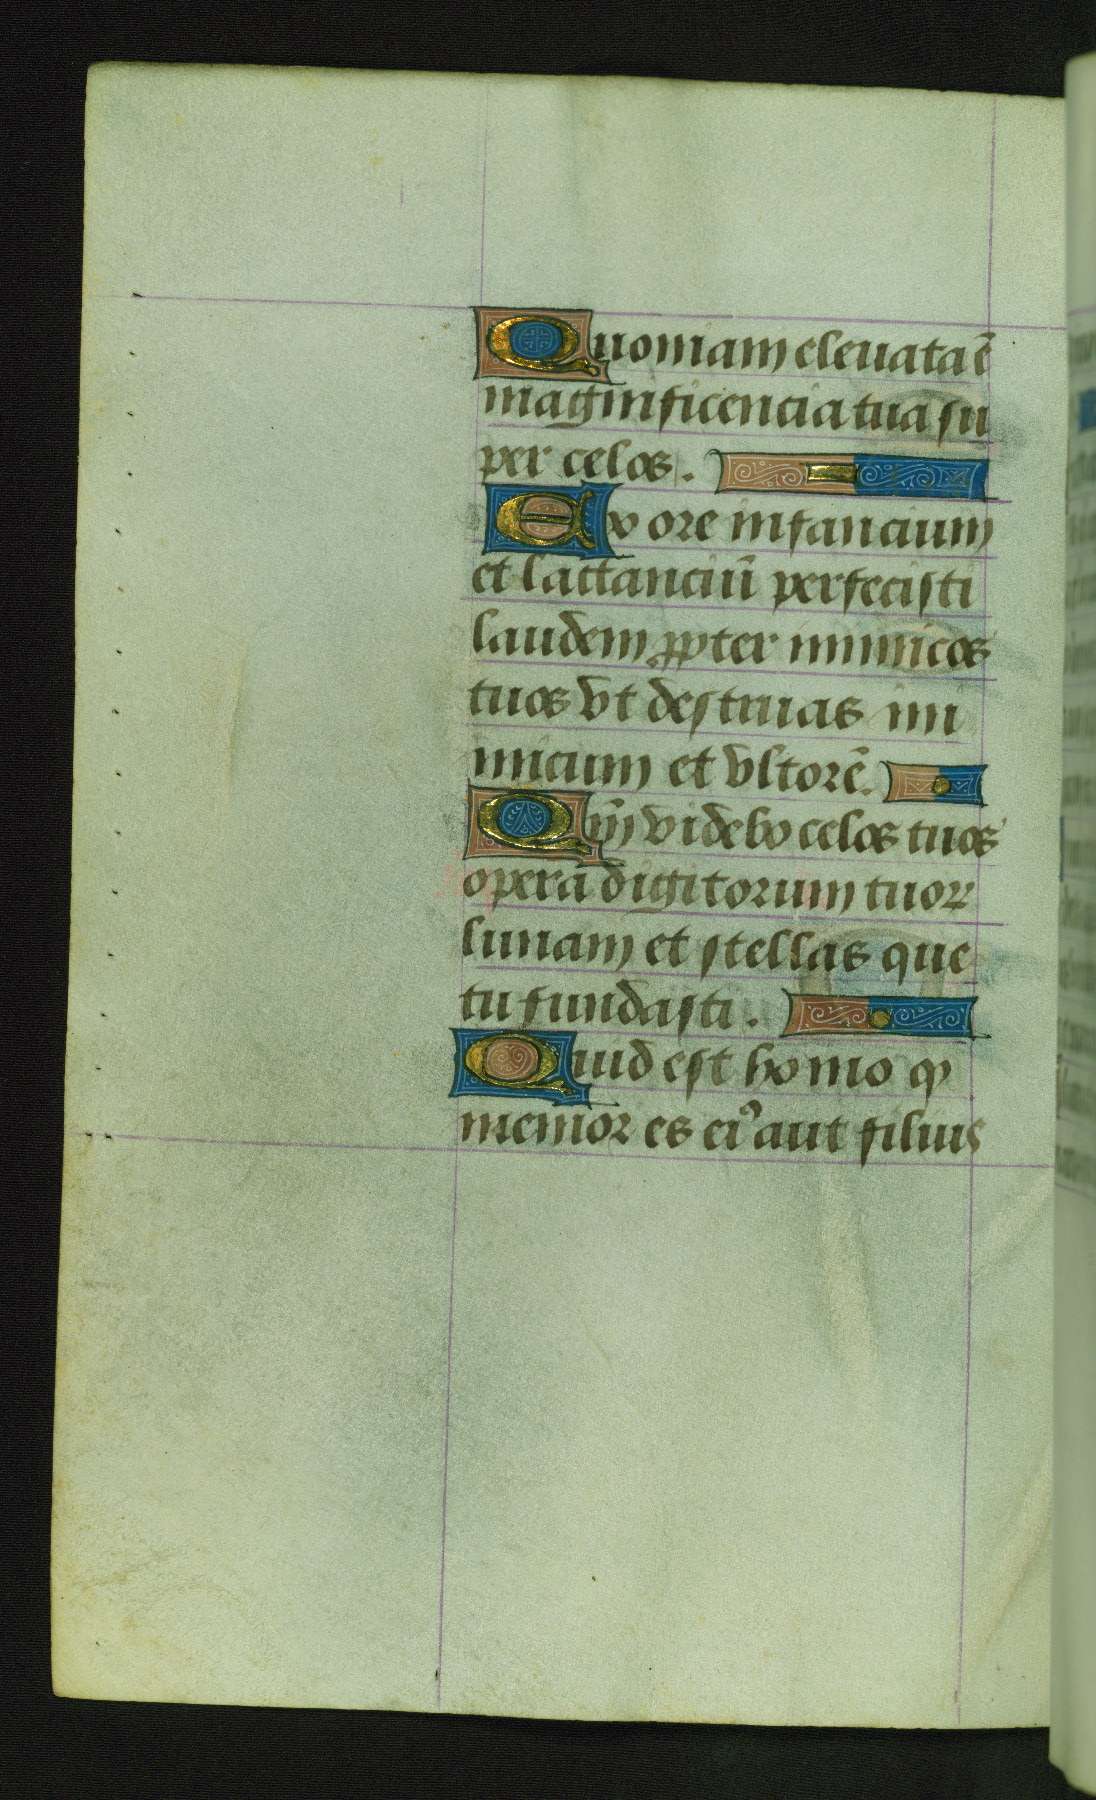 Quoniam eleuata ē
magnificencia tua su
per celos.
Ex ore infancium
et lactanciū perfecisti
laudem ꝓpter inimicos
tuos vt destruas ini
micum et vltorē.
Qm̄ videbo celos tuos
opera digitorum tuoꝝ
lunam et stellas que
tu fundasti.
Quid est homo ꝙ
memor es eiꝰ aut filius